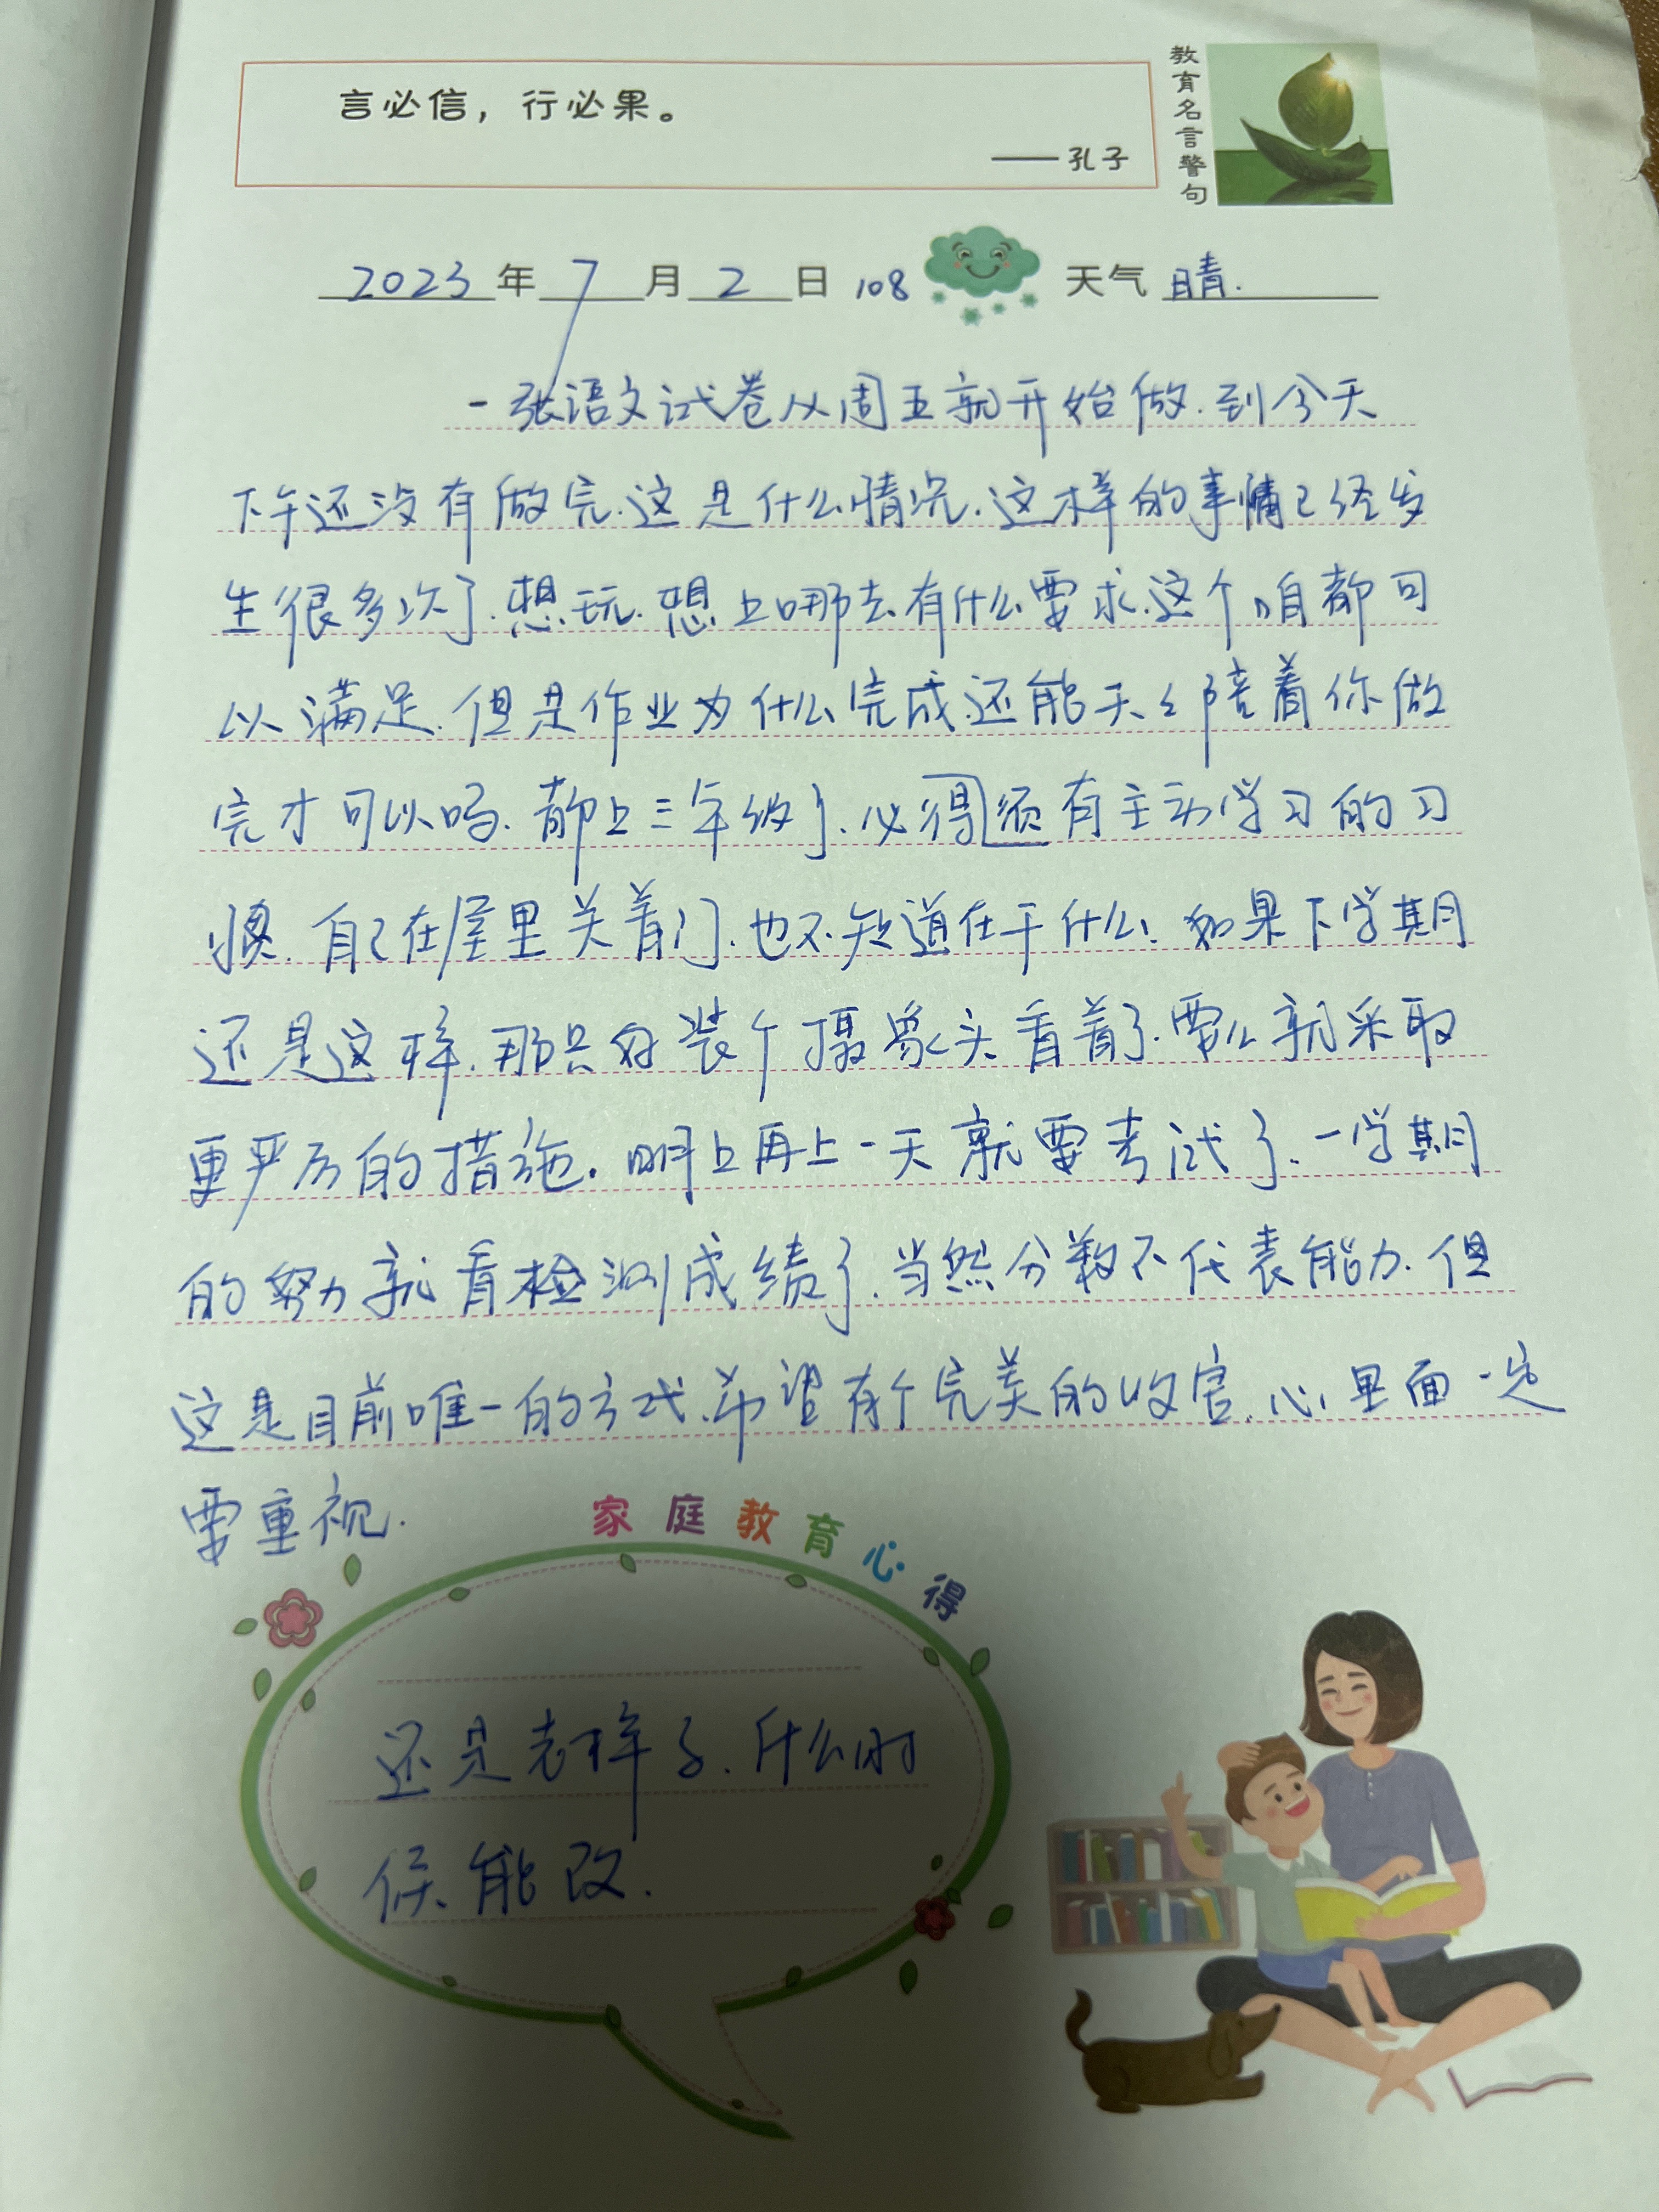 言必信，行必果。
——孔子
教育名言警句
2023年7月2日 108 天气 晴.
一张语文试卷从周五就开始做.到今天
下午还没有做完.这是什么情况.这样的事情已经发
生很多次了.想玩.想上哪去有什么要求.这个咱都可
以满足.但是作业为什么完成.还能天天陪着你做
完才可以吗.都上三年级了.必得须有主动学习的习
惯.自己在屋里关着门.也不知道在干什么.如果下学期
还是这样.那只好装个摄象头看着了.要么就采取
更严厉的措施.明上再上一天就要考试了.一学期
的努力就看检测成绩了.当然分数不代表能力.但
这是目前唯一的方式.希望有个完美的收官.心里面一定
要重视.
家庭教育心得
还是老样子.什么时
候能改.